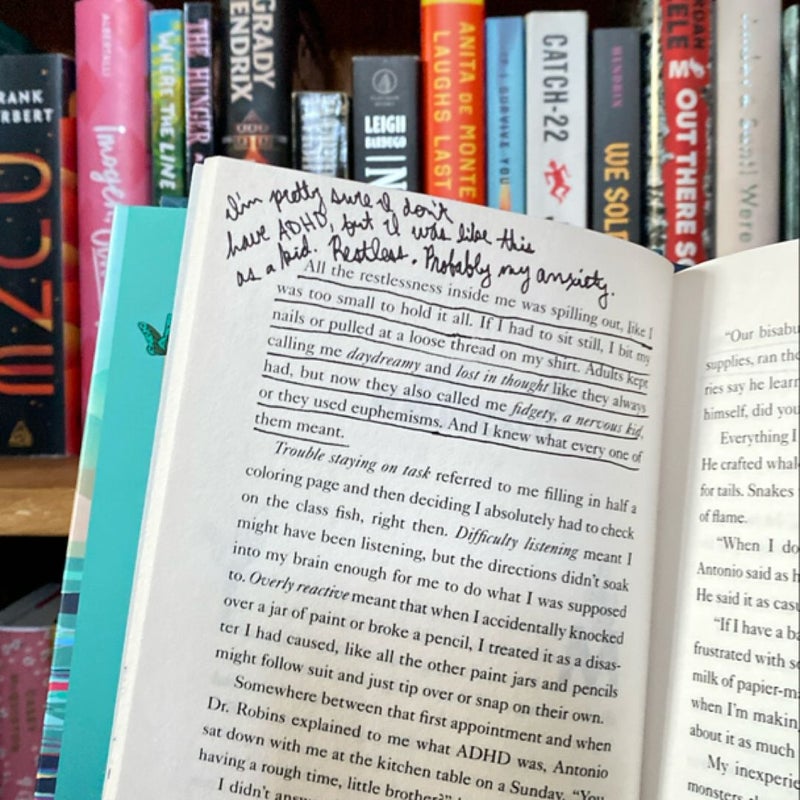 RANK
ERBERT
ALBERTALLI
WHERE THE LINE
THE HUNGER
GRADY
HENDRIX
LEIGH
BARDUGO
ANITA DE MONTE
LAUGHS LAST
I SURVIVE YOU
CATCH-22
HENDRIX
WE SOL
RDAN
EELE
OUT THERE SC
Were
I'm pretty sure I don't
have ADHD, but I was like this
as a kid. Restless. Probably my anxiety.
All the restlessness inside me was spilling out, like I
was too small to hold it all. If I had to sit still, I bit my
nails or pulled at a loose thread on my shirt. Adults kept
calling me daydreamy and lost in thought like they always
had, but now they also called me fidgety, a nervous kid,
or they used euphemisms. And I knew what every one of
them meant.
Trouble staying on task referred to me filling in half a
coloring page and then deciding I absolutely had to check
on the class fish, right then. Difficulty listening meant I
might have been listening, but the directions didn't soak
into my brain enough for me to do what I was supposed
to. Overly reactive meant that when I accidentally knocked
over a jar of paint or broke a pencil, I treated it as a disas-
ter I had caused, like all the other paint jars and pencils
might follow suit and just tip over or snap on their own.
Somewhere between that first appointment and when
Dr. Robins explained to me what ADHD was, Antonio
sat down with me at the kitchen table on a Sunday. "You
having a rough time, little brother?"
I didn't answ
"Our bisabu
supplies, ran the
ries say he learn
himself, did you
Everything I
He crafted whal
for tails. Snakes
of flame.
"When I do
Antonio said as h
He said it as cas
"If I have a ba
frustrated with so
milk of papier-m
when I'm makin
about it as much
My inexperie
monsters